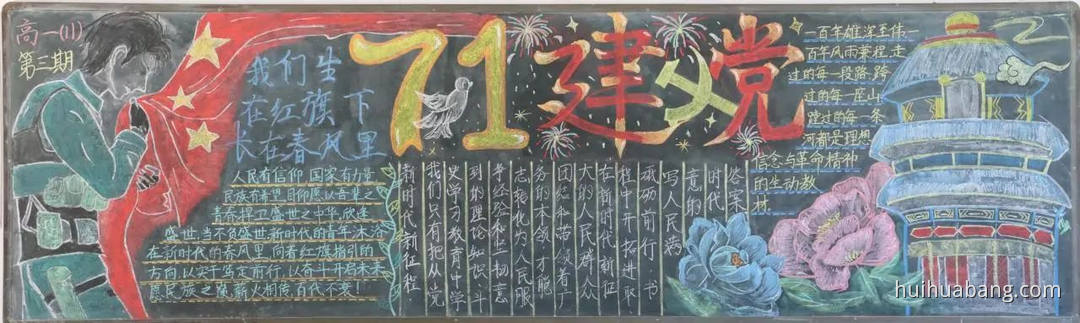 高一(11)
第三期
我们生
在红旗下
长在春风里
人民有信仰 国家有力量
民族有希望 目仰愿以吾辈之
青春捍卫盛世之中华,欣逢
盛世,当不负盛世新时代的青年沐浴
在新时代的春风里,向着红旗指引的
方向,以实干笃定前行,以奋斗开启未来
愿民族之魂,薪火相传,百代不衰!!
71建党
新时代新征程
我们只有把从党
史学习教育中学
到的理论知识、斗
争经验和坚韧意
志转化为人民服
务的本领 才能
团结和带领着广
大的人民群众
在新时代新征
程中开拓进取
砥砺前行 书
写人民满
意的
时代
答案
一百年雄浑至伟一
百年风雨兼程,走
过的每一段路,跨
过的每一座山
跳过的每一条
河都是理想
信念与革命精神
的生动教
材
huihuabang.com